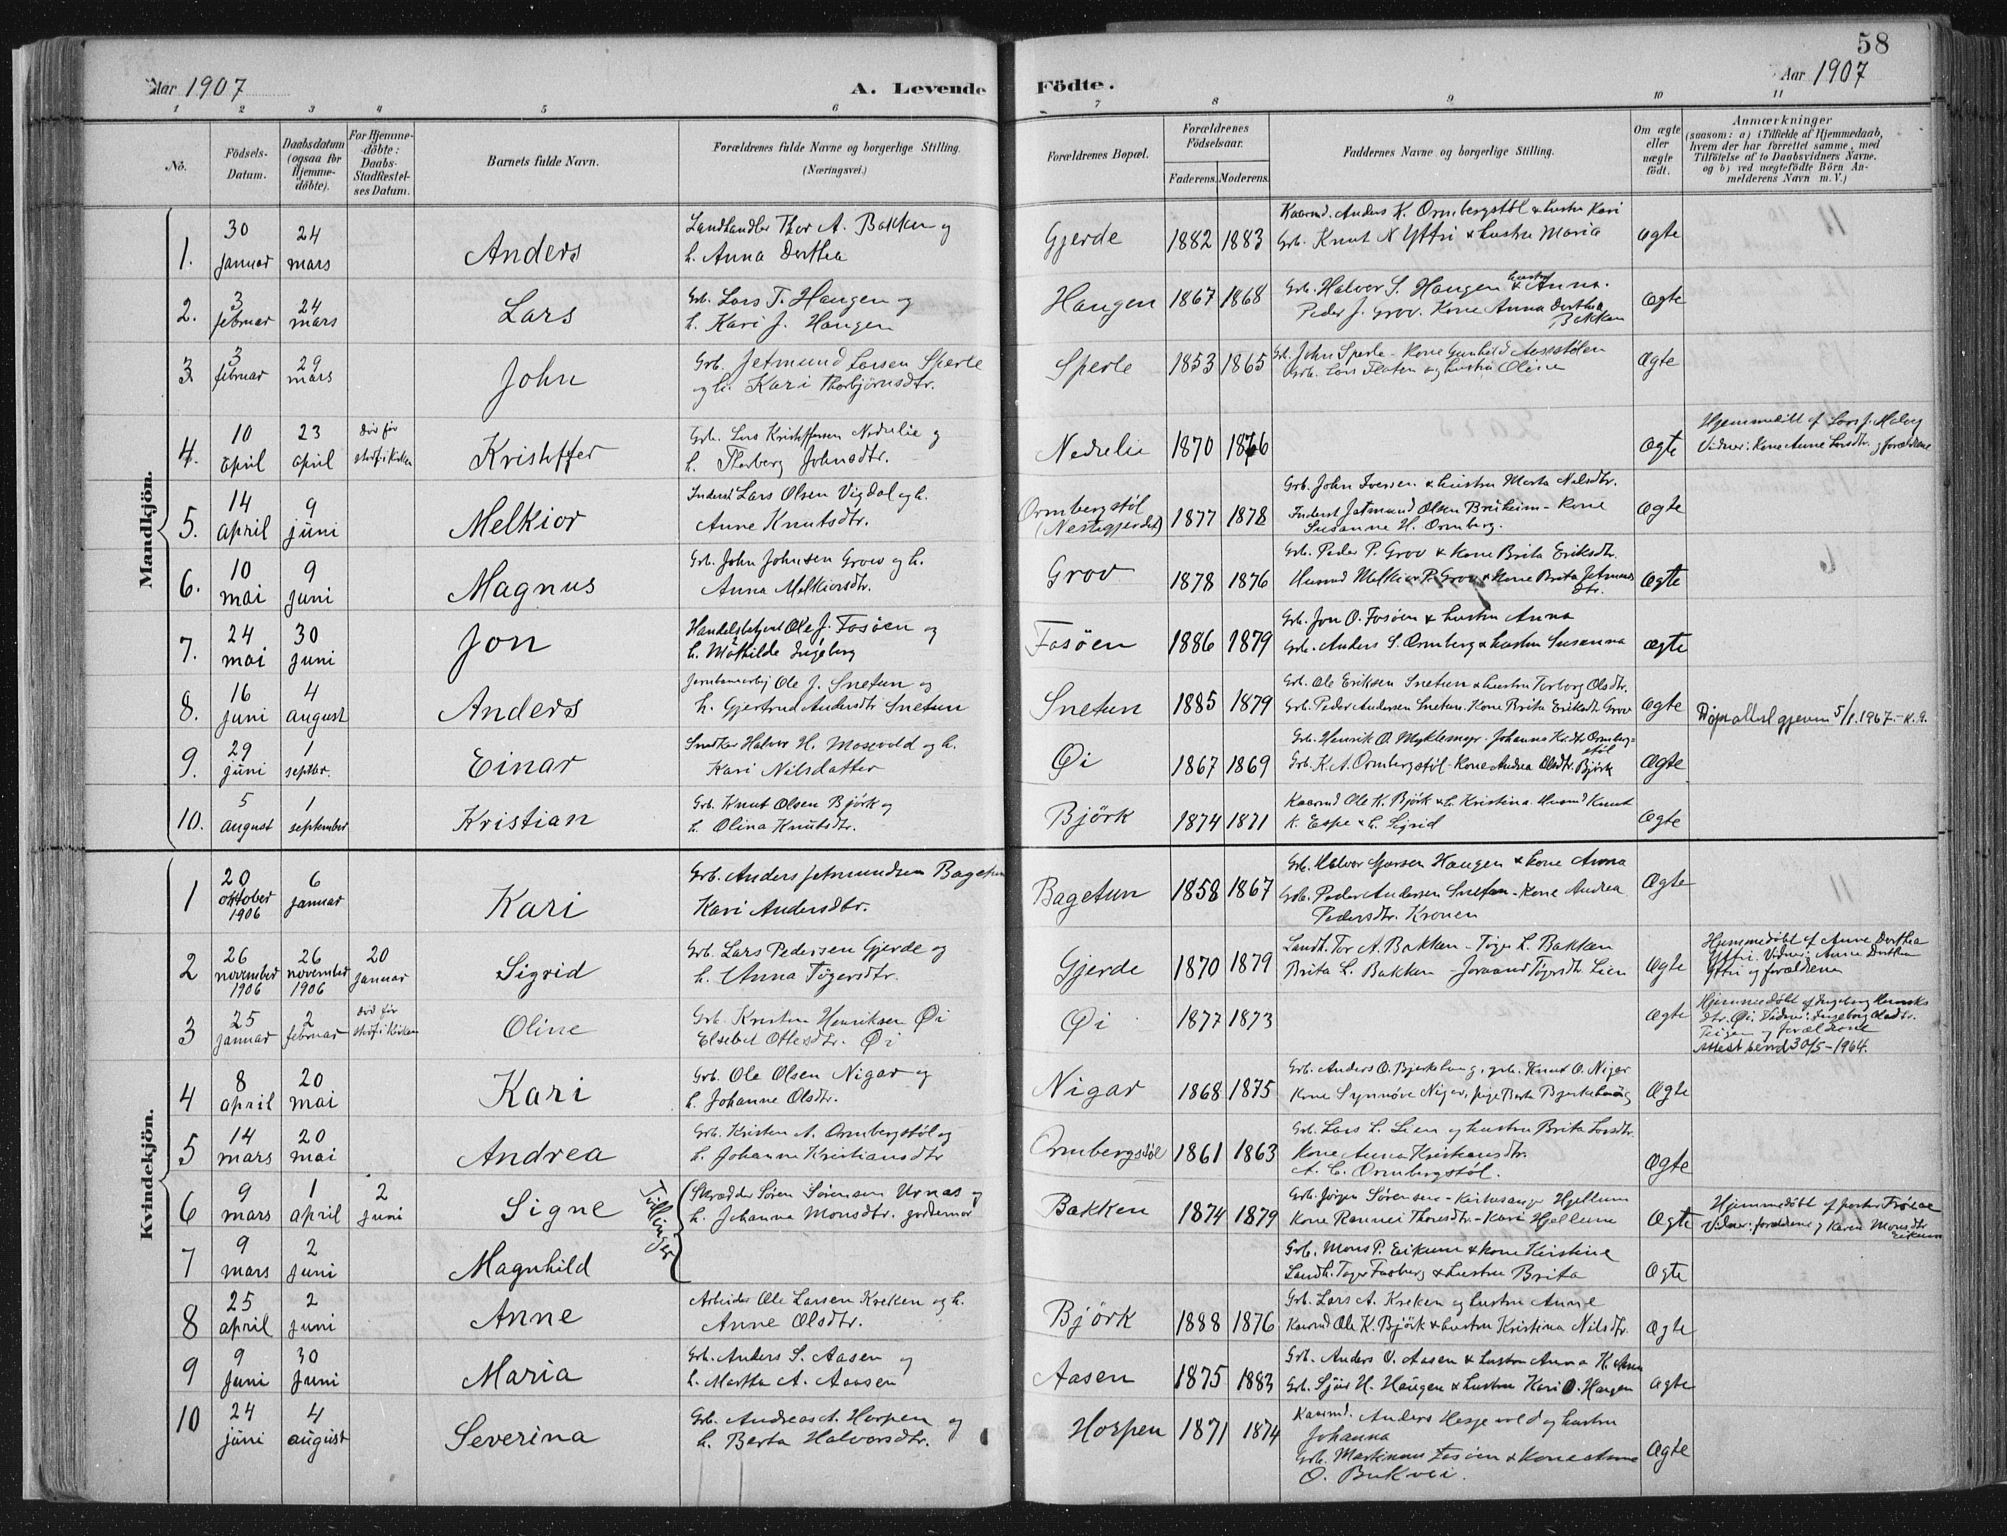 58
Aar 1907
A. Levende Födte.
Aar 1907
1 2 3 4 5 6 7 8 9 10 11
No.
Födsels-Datum.
Daabsdatum (ogsaa for Hjemme-döbte).
For Hjemme-döbte: Daabs-Stadfæstel-ses Datum.
Barnets fulde Navn.
Forældrenes fulde Navne og borgerlige Stilling. (Næringsvei.)
Forældrenes Bopæl.
Forældrenes Födselsaar.
Faderens. Moderens.
Faddernes Navne og borgerlige Stilling.
Om ægte eller uægte födt.
Anmærkninger
(saasom: a) i Tilfælde af Hjemmedaab, hvem der har forrettet samme, med Tilföielse af to Daabsvidners Navne, og b) ved uægtefödte Börn An-melderens Navn m. V.)
Mandkjön.
1. 30 januar 24 mars Anders Landhandler Thor A. Bakken og h. Anna Dorthea Gjerde 1882 1883 Kaarmd. Anders K. Ormbergstöl & hustru Kari
Grb. Knut N. Yttri & hustru Maria ægte
2. 3 februar 24 mars Lars Grb. Lars T. Haugen og h. Kari J. Haugen Haugen 1867 1868 Grb. Halvor S. Haugen & hustru Anna.
Peder J. Grov. Kone Anna Dorthea Bakken ægte
3. 3 februar 29 mars John Grb. Jetmund Larsen Sperle og h. Kari Thorbjörnsdtr. Sperle 1853 1865 Grb. John Sperle - Kone Gunhild
Grb. Lars og hustru Oline ægte
4. 10 april 23 april död för stadf. i Kirken Kristoffer Grb. Lars Kristoffersen Nedrelie og h. Thorberg Johnsdtr. Nedrelie 1870 1876 ægte Hjemmedöbt af Lars J.
Vidner: Kone Anne Larsdtr. og forældrene
5. 14 april 9 juni Melkior Inderst Lars Olsen Vigdal og h. Anne Knutsdtr. Ormbergstöl (Nestegjerdet) 1877 1878 Grb. John Iversen & hustru Marta Nilsdtr.
Inderst Jetmund Olsen Bruheim - Kone
Susanne H. Ormberg. ægte
6. 10 mai 9 juni Magnus Grb. John Johnsen Grov og h. Anna Melkiorsdtr. Grov 1878 1876 Grb. Peder P. Grov & Kone Brita Eriksdtr.
Husmd Melkior P. Grov & Kone Brita Jetmundsdtr. ægte
7. 24 mai 30 juni Jon Handelsbetjent Ole J. Fosöen og h. Mathilde Ingeborg Fosöen 1886 1879 Grb. Jon O. Fosöen & hustru Anna
Grb. Anders S. Ormberg & hustru Susanna ægte
8. 16 juni 4 august Anders Jernbanearbej Ole J. Snetun og h. Gjertrud Andersdtr Snetun Snetun 1885 1879 Grb. Ole Eriksen Snetun & hustru Torborg Olsdtr.
Grb. Peder Andersen Snetun. Kone Brita Eriksdtr Grov ægte Döpsattest gjeven 5/1.1967. - K. G.
9. 29 juni 1 septbr. Einar Snedker Halvor H. Mosevold og h. Kari Nilsdatter Øi 1867 1869 Grb. Henrik O. Myklemyr. Johanna Kr.dtr Ormbergstöl
Grb. K. A. Ormbergstöl - Kone Andrea Olsdtr. Björk ægte
10. 5 august 1 september Kristian Grb. Knut Olsen Björk og h. Olina Knutsdtr. Björk 1874 1871 Kaarmd Ole K. Björk & h. Kristina. Husmd Knut
K. Espe & h. Sigrid ægte
Kvindekjön.
1 20 oktober 1906 6 januar Kari Grb. Anders Jetmundsen Bagetun Kari Andersdtr. Bagetun 1858 1867 Grb. Halvor Sjursen Haugen & kone Anna
Grb. Peder Andersen Snetun - Kone Andrea
Pedersdtr. Kronen ægte
2 26 november 1906 26 november 1906 20 januar Sigrid Grb. Lars Pedersen Gjerde og h. Anna Tögersdtr. Gjerde 1870 1879 Landh. Tor A. Bakken - Töger L. Bakken
Brita L. Bakken - Joraand Tögersdtr. Lien ægte Hjemmedöbt af Anne Dorthea Yttri. Vidner: Anne Dorthea Yttri og forældrene
3 25 januar 2 februar död för stadf. i Kirken Oline Grb. Kristen Henriksen Øi Elsebet Ottesdtr. Øi Øi 1877 1873 ægte Hjemmedöbt af Ingeborg Henriks dtr. Øi. Vidner: Ingeborg Olsdtr. Teigen og forældrene
Attest send 30/5 - 1964.
4 8 april 20 mai Kari Grb. Ole Olsen Nigar og h. Johanne Olsdtr. Nigar 1868 1875 Grb. Anders O. Bjerkehaug, grb. Knut O. Nigar
Kone Synnöve Nigar, pige Berta Bjerkehaug ægte
5 14 mars 20 mai Andrea Grb. Kristen A. Ormbergstöl og h. Johanna Kristiansdtr Ormbergstöl 1861 1863 Grb. Lars L. Lien og hustru Brita Larsdtr.
Kone Anna Kristiansdtr.
A. C. Ormbergstöl. ægte
6 9 mars 1 april 2 juni Signe Tvillinger Skrædder Sören Sörensen Urnes og h. Johanna Monsdtr. jordemor Bakken 1874 1879 Grb. Jörgen Sörensen - Kirkesanger Hjellum
Kone Rannei Thoresdtr - Kari Hjellum ægte Hjemmedöbt af
Vidner: forældrene og Karen Monsdtr Eikum
7 9 mars 2 juni Magnhild Grb. Mons P. Eikum & kone Kirstine
Landh. Töger Fosberg & hustru Brita ægte
8 25 april 2 juni Anne Arbeider Ole Larsen Kreken og h. Anne Olsdtr. Björk 1888 1876 Grb. Lars A. Kreken og hustru Anne
Kaarmd Ole K. Björk & hustru Kristina Nilsdtr. ægte
9 9 juni 30 juni Maria Grb. Anders S. Aasen og h. Martha A. Aasen Aasen 1875 1883 Grb. Anders O. Aasen & hustru Anna K.
Grb. Sjur H. Haugen & hustru Kari O. Haugen ægte
10 24 juni 4 august Severina Grb. Andreas A. Horpen og h. Berta Halvorsdtr. Horpen 1871 1874 Kaarmd. Anders Hesjevold og hustru
Johanna
Grb. Martinus Fosöen & kone Anne
O. Bukvei. ægte